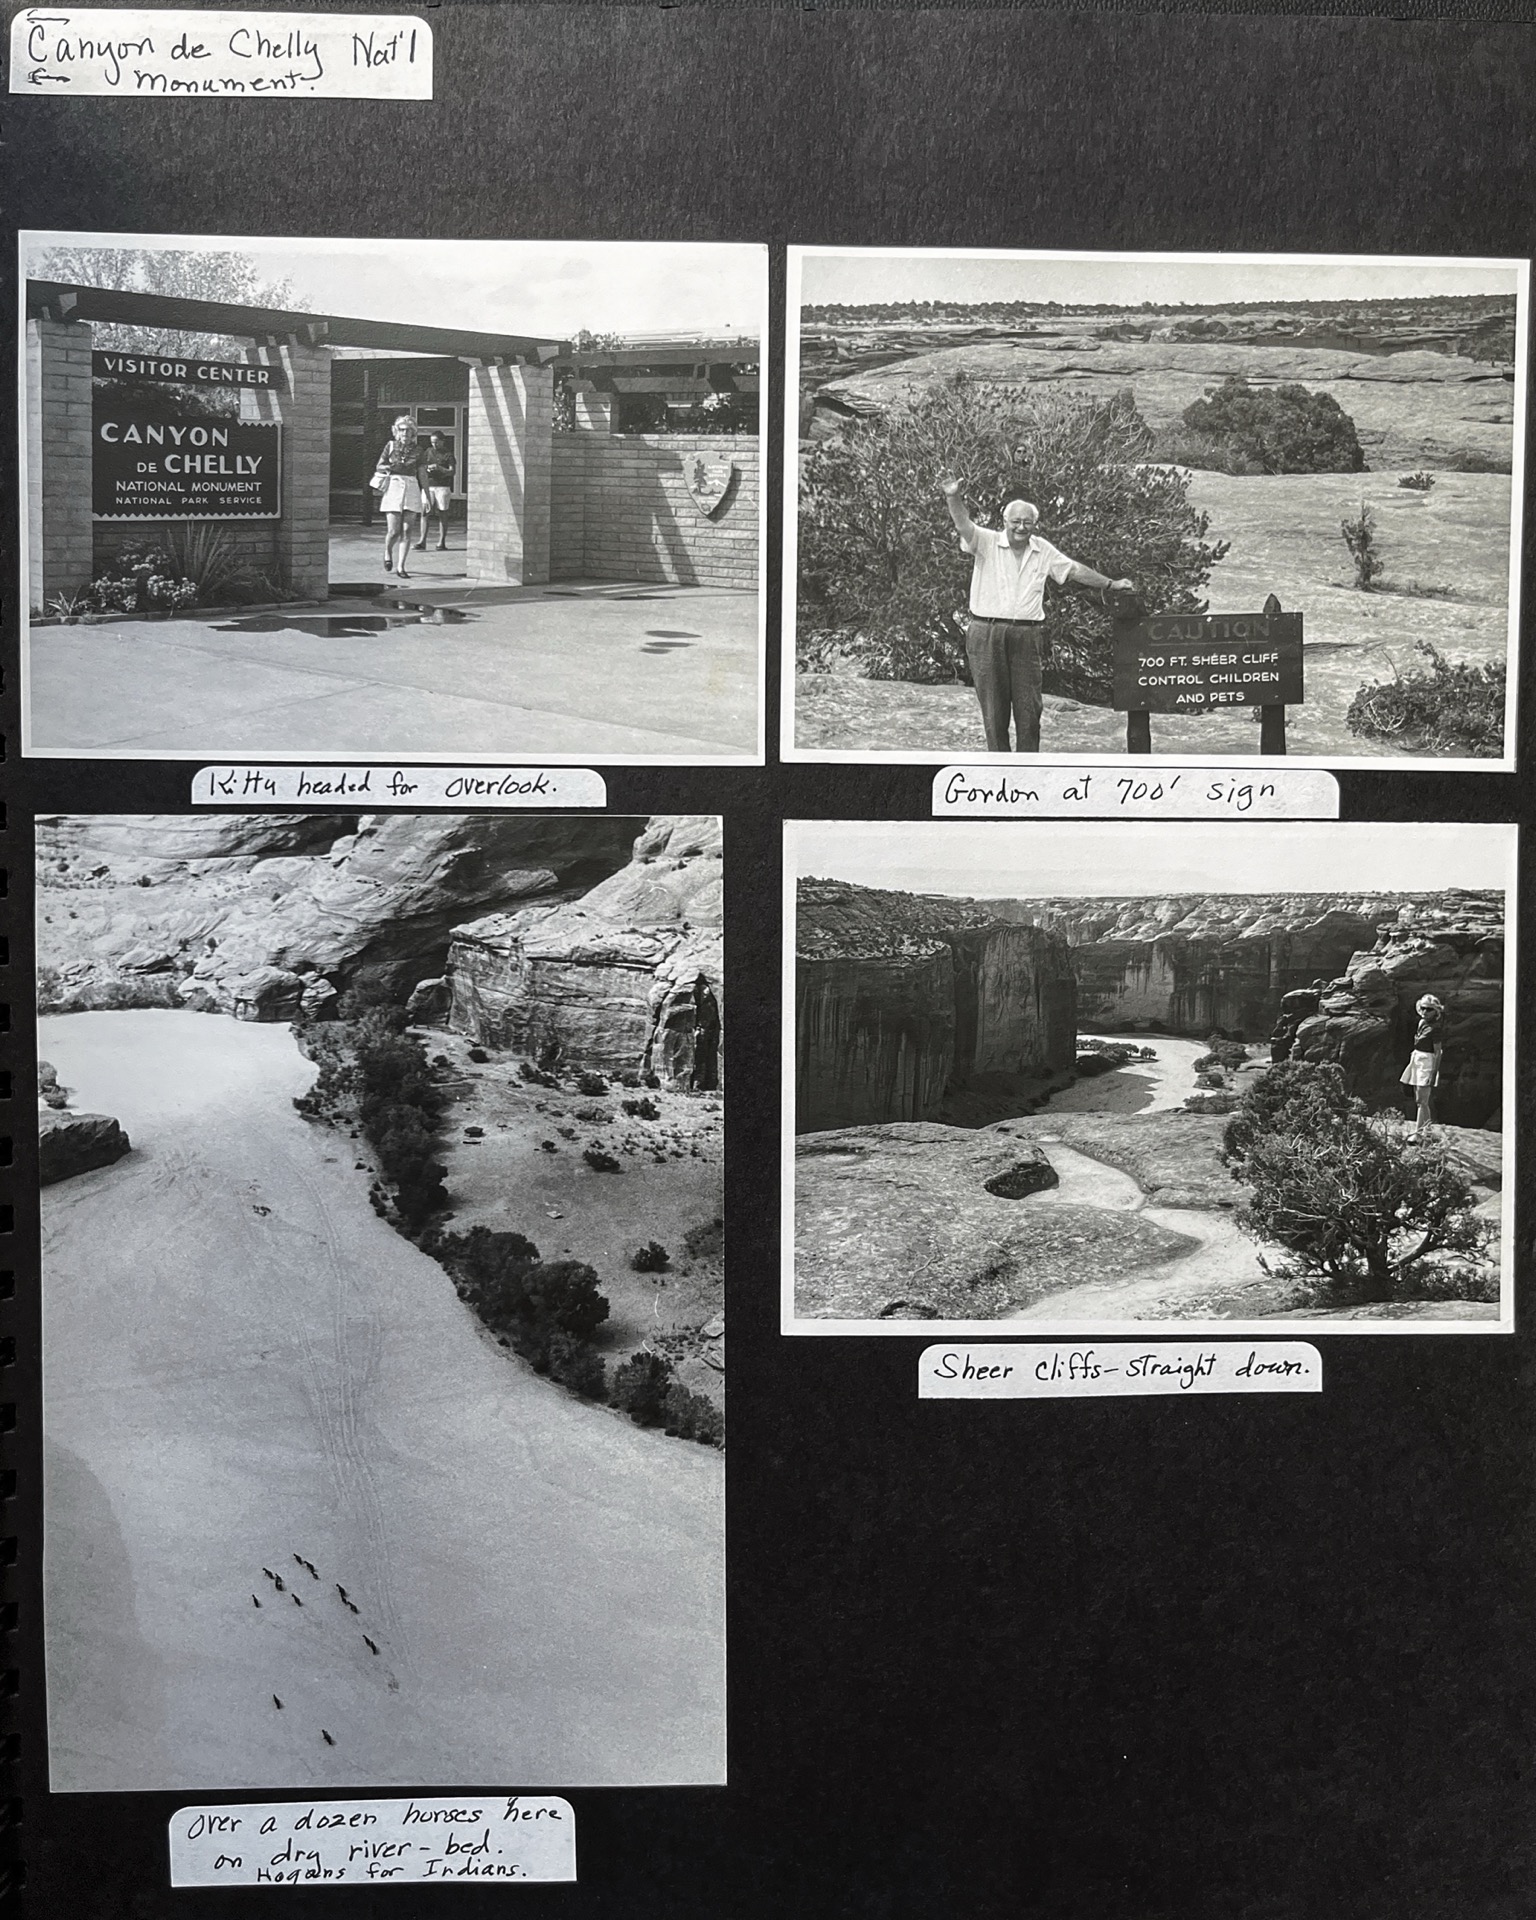 Canyon de Chelly Nat'l
Monument.
VISITOR CENTER
CANYON
DE CHELLY
NATIONAL MONUMENT
NATIONAL PARK SERVICE
CAUTION
700 FT. SHEER CLIFF
CONTROL CHILDREN
AND PETS
Kitty headed for overlook.
Gordon at 700' sign
Sheer cliffs-straight down.
Over a dozen horses here
on dry river-bed.
Hogans for Indians.